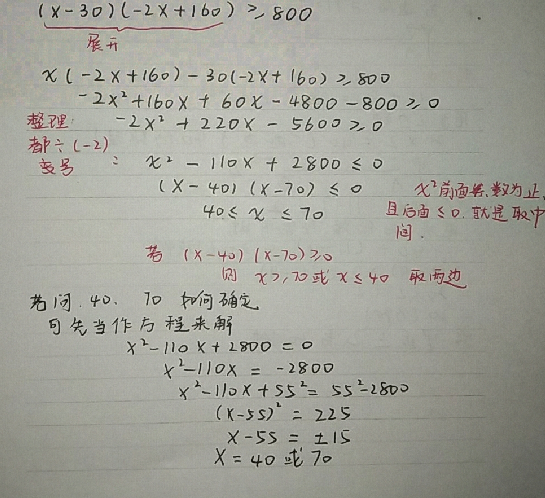 (x-30)(-2x+160) ≥ 800
展开
x(-2x+160)-30(-2x+160) ≥ 800
-2x²+160x+60x-4800-800 ≥ 0
整理: -2x²+220x-5600 ≥ 0
都÷(-2)
变号: x²-110x+2800 ≤ 0
(x-40)(x-70) ≤ 0
x²前面系数为正,
40 ≤ x ≤ 70
且后面≤0. 就是取中
间.
若 (x-40)(x-70) ≥ 0
则 x ≥ 70 或 x ≤ 40 取两边
若问. 40、70 如何确定
可先当作方程来解
x²-110x+2800 = 0
x²-110x = -2800
x²-110x+55² = 55²-2800
(x-55)² = 225
x-55 = ±15
x = 40 或 70